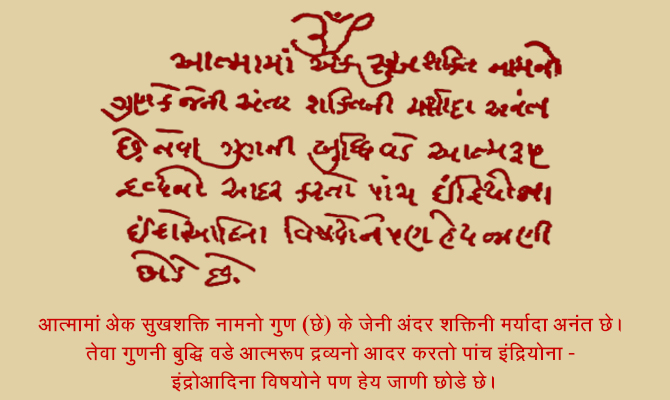 ૐ
આત્મામાં એક સુખશક્તિ નામનો
ગુણ કે જેની અંદર શક્તિની મર્યાદા અનંત
છે. તેવા ગુણની બુદ્ધિ વડે આત્મરૂપ
દ્રવ્યનો આદર કરતો પાંચ ઇંદ્રિયોના
ઇંદ્રોઆદિના વિષયોને પણ હેય જાણી
છોડે છે.
आत्मामां ॲक सुखशक्ति नामनो गुण (छे) के जेनी अंदर शक्तिनी मर्यादा अनंत छे।
तेवा गुणनी बुद्धि वडे आत्मरूप द्रव्यनो आदर करतो पांच इंद्रियोना -
इंद्रोआदिना विषयोने पण हेय जाणी छोडे छे।